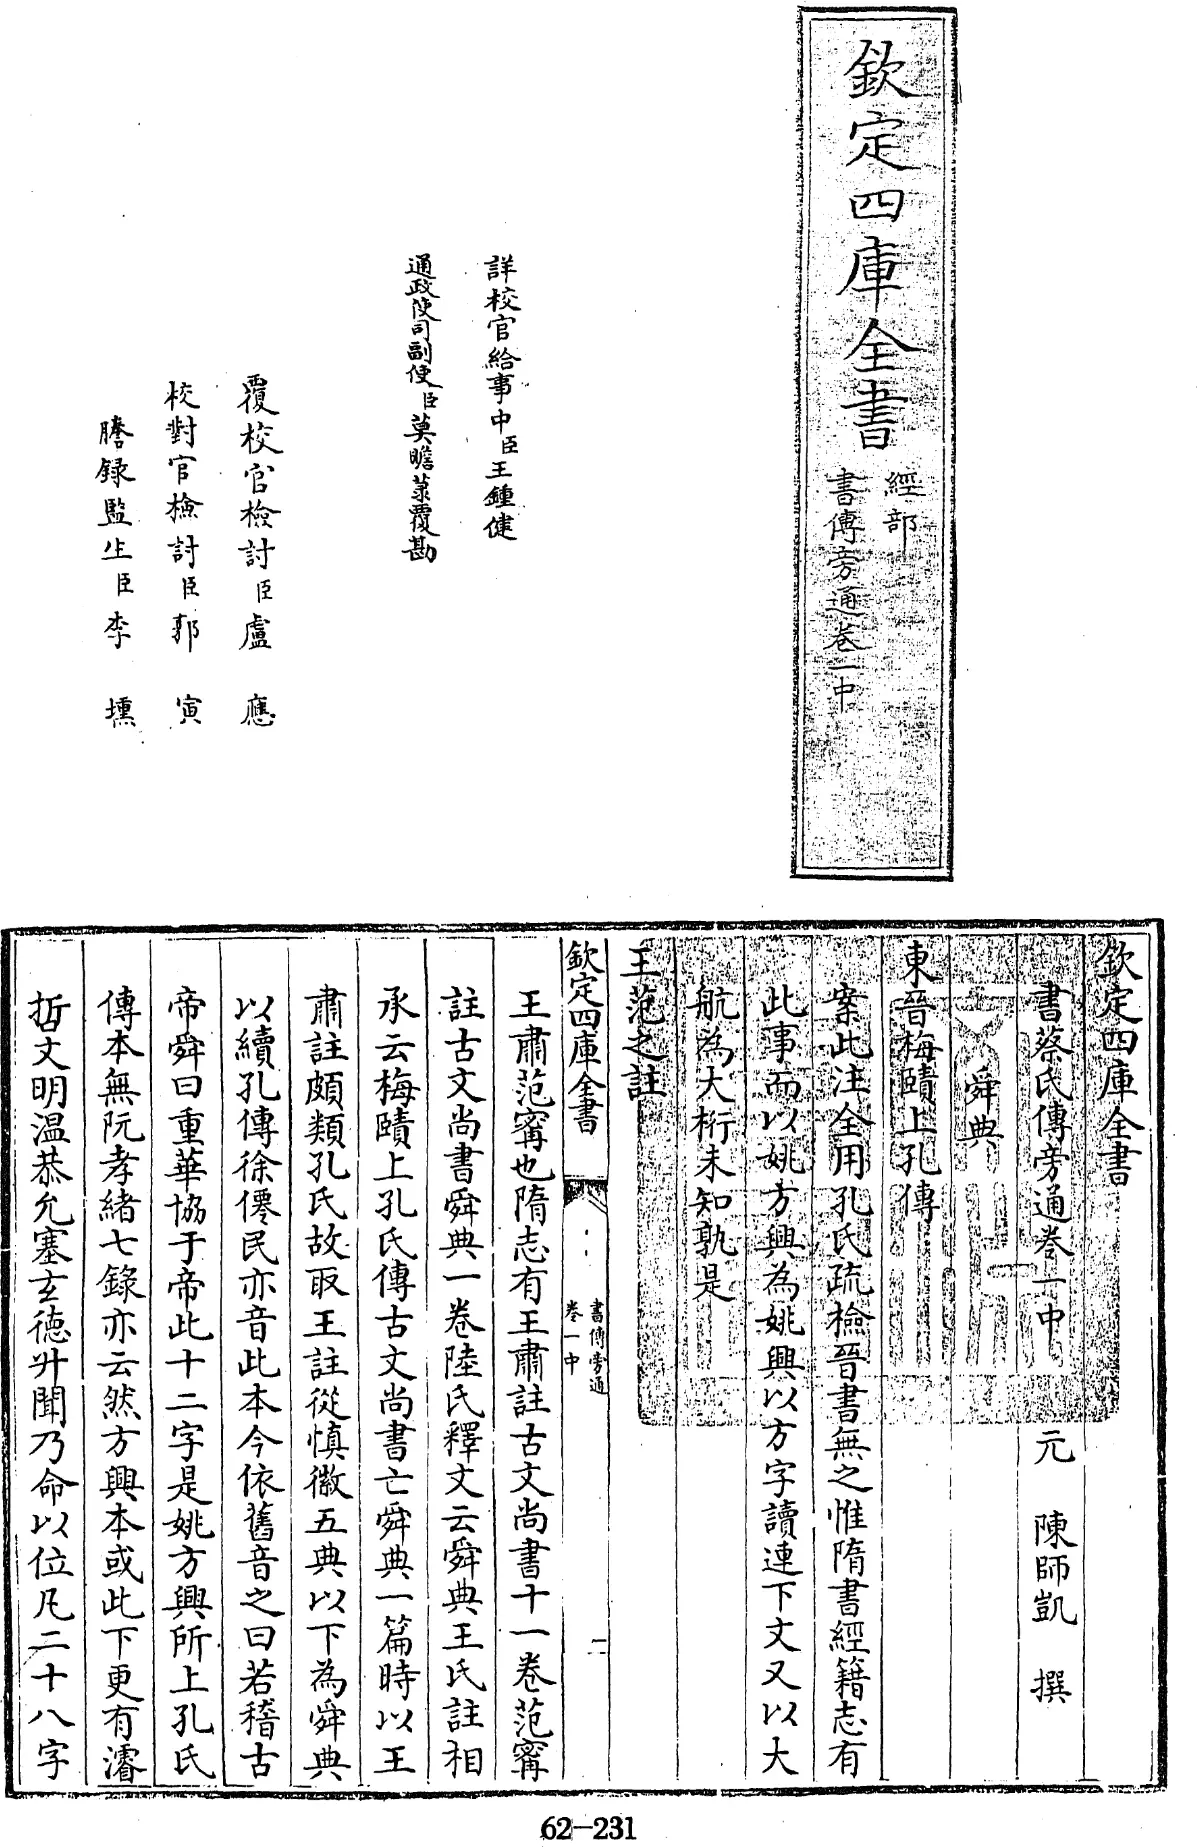 欽定四庫全書
經部
書傳旁通卷一中
詳校官給事中臣王鍾健
通政使司副使臣莫瞻菉覆勘
覆校官檢討臣盧應
校對官檢討臣郭寅
謄錄監生臣李壎
欽定四庫全書
書蔡氏傳旁通卷一中 元 陳師凱 撰
舜典
東晉梅賾上孔傳
案此注全用孔氏疏檢晉書無之惟隋書經籍志有
此事而以姚方興為姚興以方字讀連下文又以大
航為大桁未知孰是
王范之註
欽定四庫全書
書傳旁通
卷一中
二
王肅范甯也隋志有王肅註古文尚書十一卷范甯
註古文尚書舜典一卷陸氏釋文云舜典王氏註相
承云梅賾上孔氏傳古文尚書亡舜典一篇時以王
肅註頗類孔氏故取王註從慎徽五典以下為舜典
以續孔傳徐僊民亦音此本今依舊音之曰若稽古
帝舜曰重華協于帝此十二字是姚方興所上孔氏
傳本無阮孝緒七錄亦云然方興本或此下更有濬
哲文明温恭允塞玄德升聞乃命以位凡二十八字
62-231